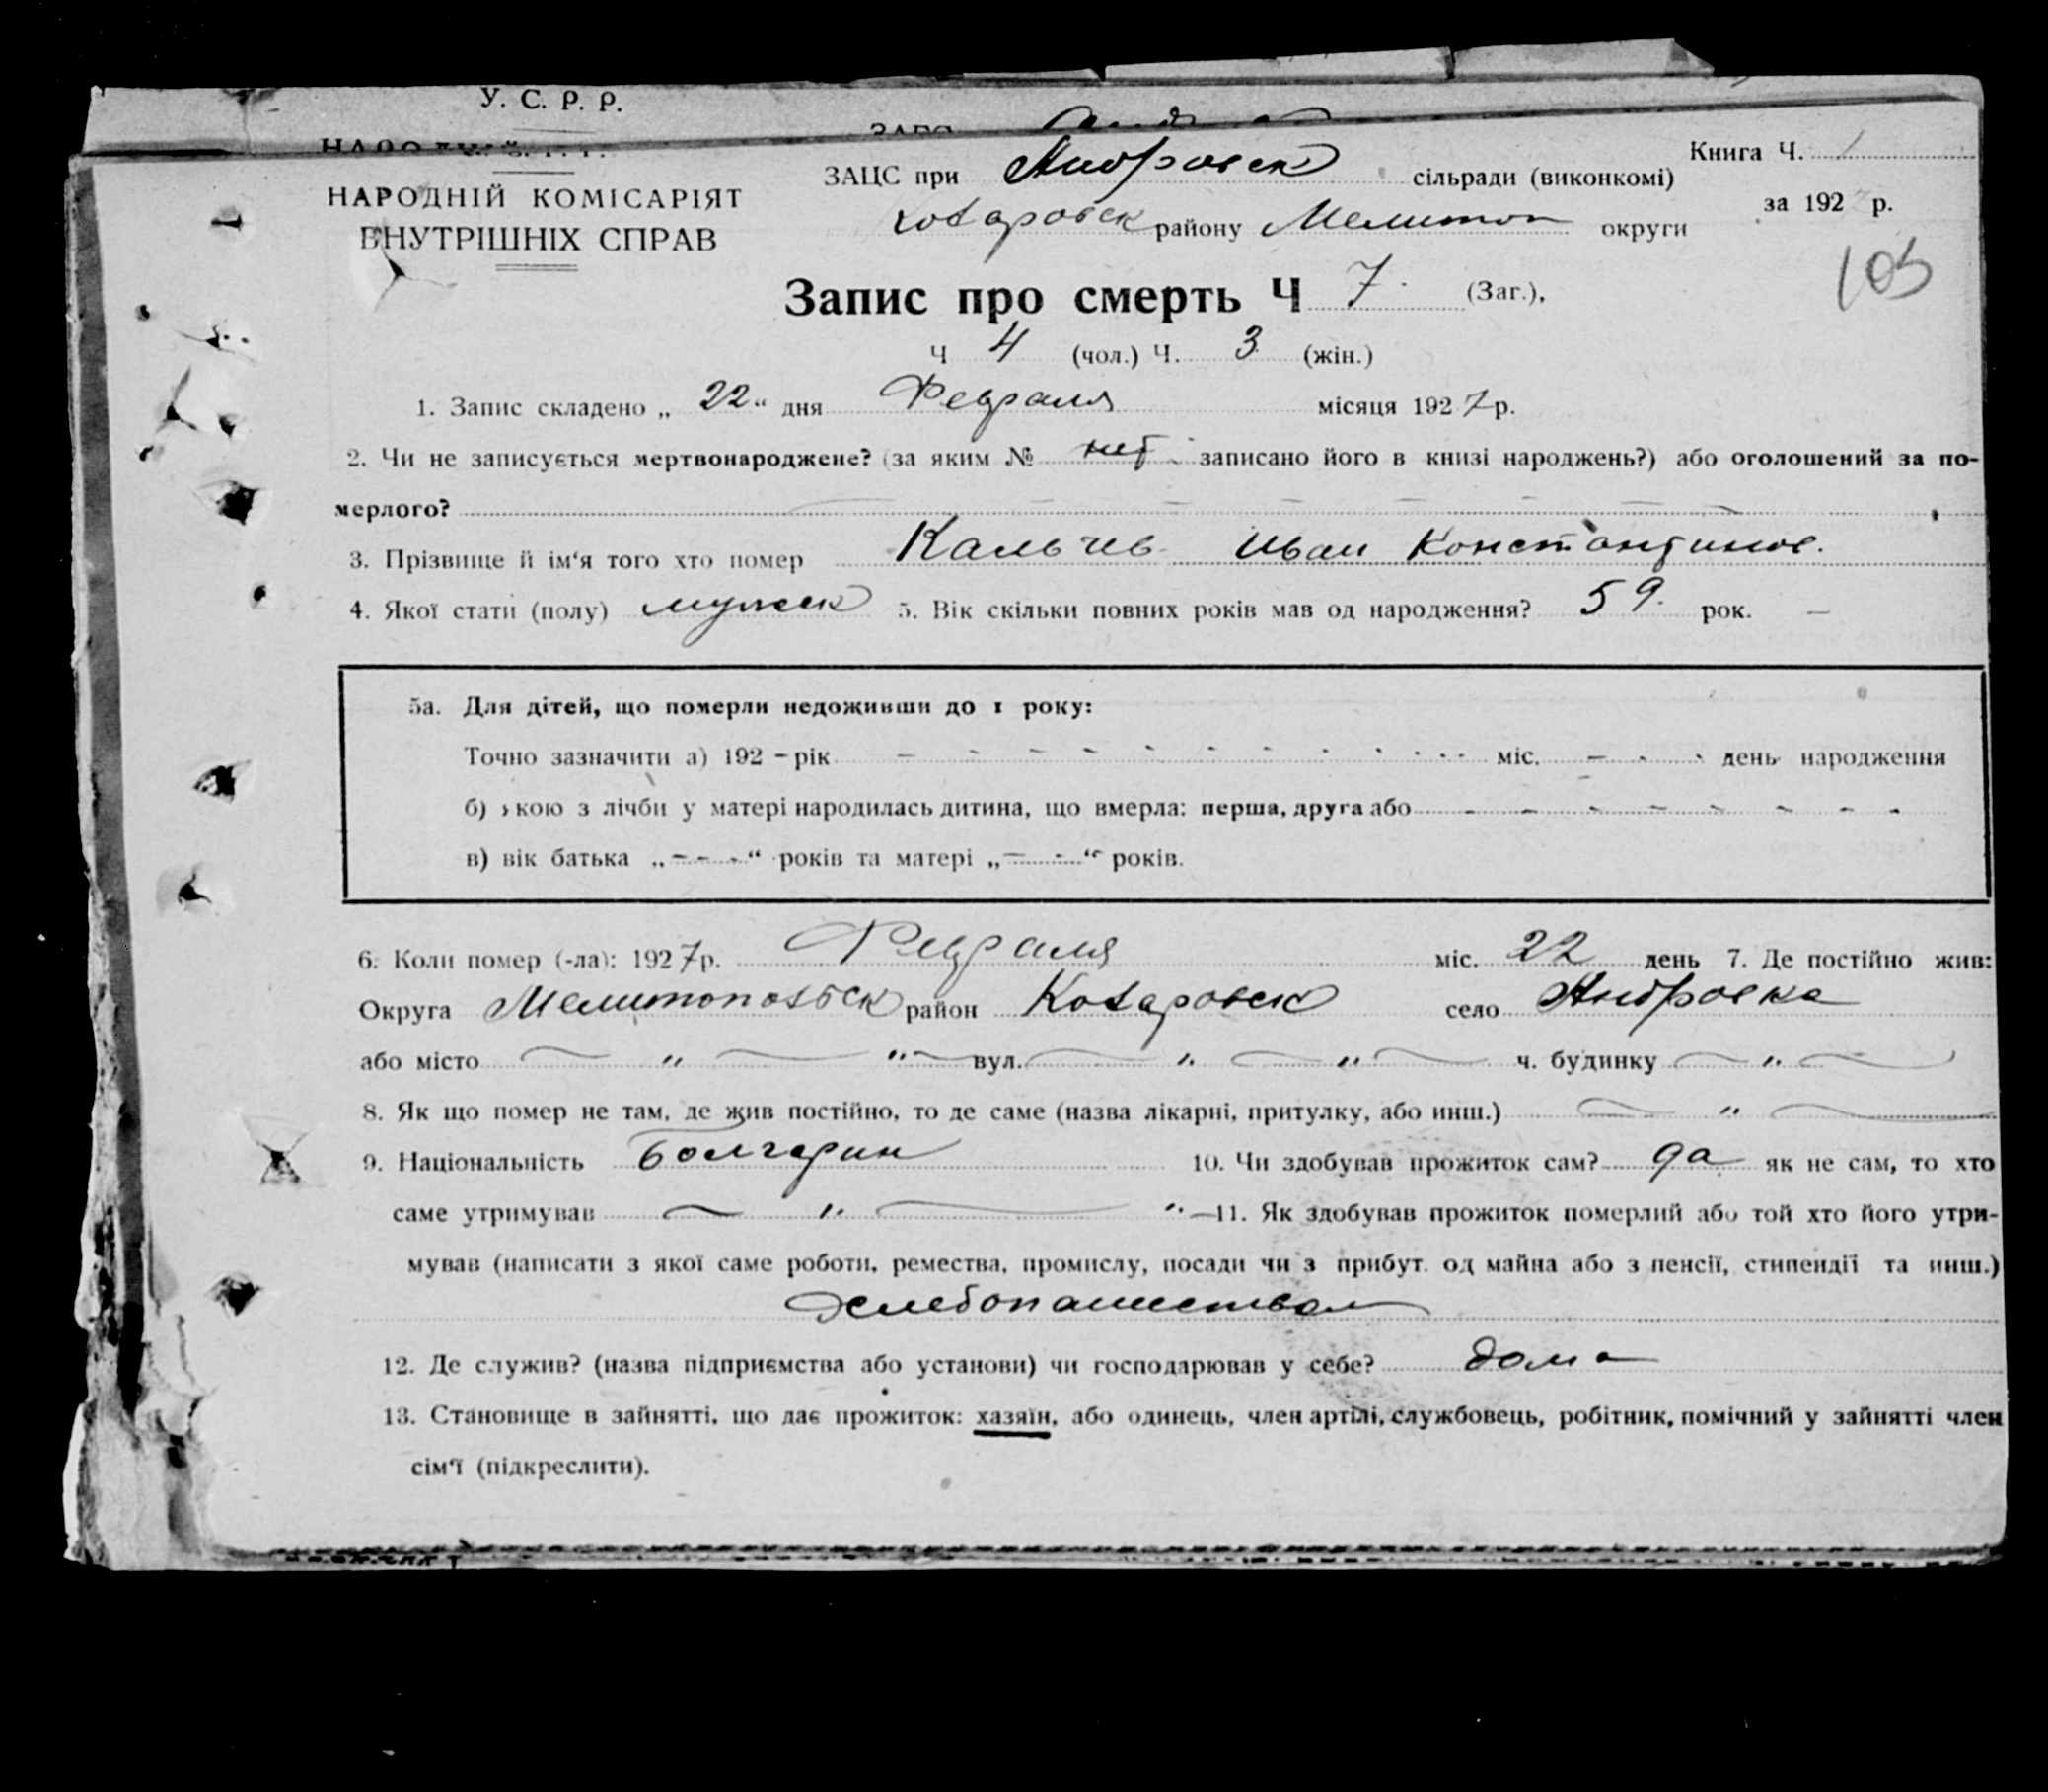 У. С. Р. Р.
НАРОДНІЙ КОМІСАРІЯТ
ВНУТРІШНІХ СПРАВ
Книга Ч. 1
за 192 р.
105
ЗАЦС при Андровск сільради (виконкомі)
района Мелитоп округи
Запис про смерть Ч 7. (Заг.),
Ч 4 (чол.) Ч. 3 (жін.)
1. Запис складено „ 22 “ дня Февраля місяця 1927 р.
2. Чи не записується мертвонароджене? (за яким № нет записано його в книзі народжень?) або оголошений за по-
мерлого?
3. Прізвище й ім‘я того хто помер Кальчев Иван Константинов.
4. Якої стати (полу) мужск 5. Вік скільки повних років мав од народження? 59. рок. —
5а. Для дітей, що померли недоживши до 1 року:
Точно зазначити а) 192 – рік - - - - - - - - - - міс. - - - день народження
б) якою з лічби у матері народилась дитина, що вмерла: перша, друга або - - - - - - - -
в) вік батька „ - - - “ років та матері „ - - “ років.
6. Коли помер (-ла): 1927 р. Февраля міс. 22 день 7. Де постійно жив:
Округа Мелитопольск район село Андровка
або місто — „ — „ — вул. — „ — „ — ч. будинку — „ —
8. Як що помер не там, де жив постійно, то де саме (назва лікарні, притулку, або инш.) — „ —
9. Національність Болгарин 10. Чи здобував прожиток сам? да як не сам, то хто
саме утримував — „ — „ — 11. Як здобував прожиток померлий або той хто його утри-
мував (написати з якої саме роботи, ремества, промислу, посади чи з прибут. од майна або з пенсії, стипендії та инш.)
хлебопашеством
12. Де служив? (назва підприємства або установи) чи господарював у себе? дома
13. Становище в зайнятті, що дає прожиток: хазяїн, або одинець, член артілі, службовець, робітник, помічний у зайнятті член
сім‘ї (підкреслити).